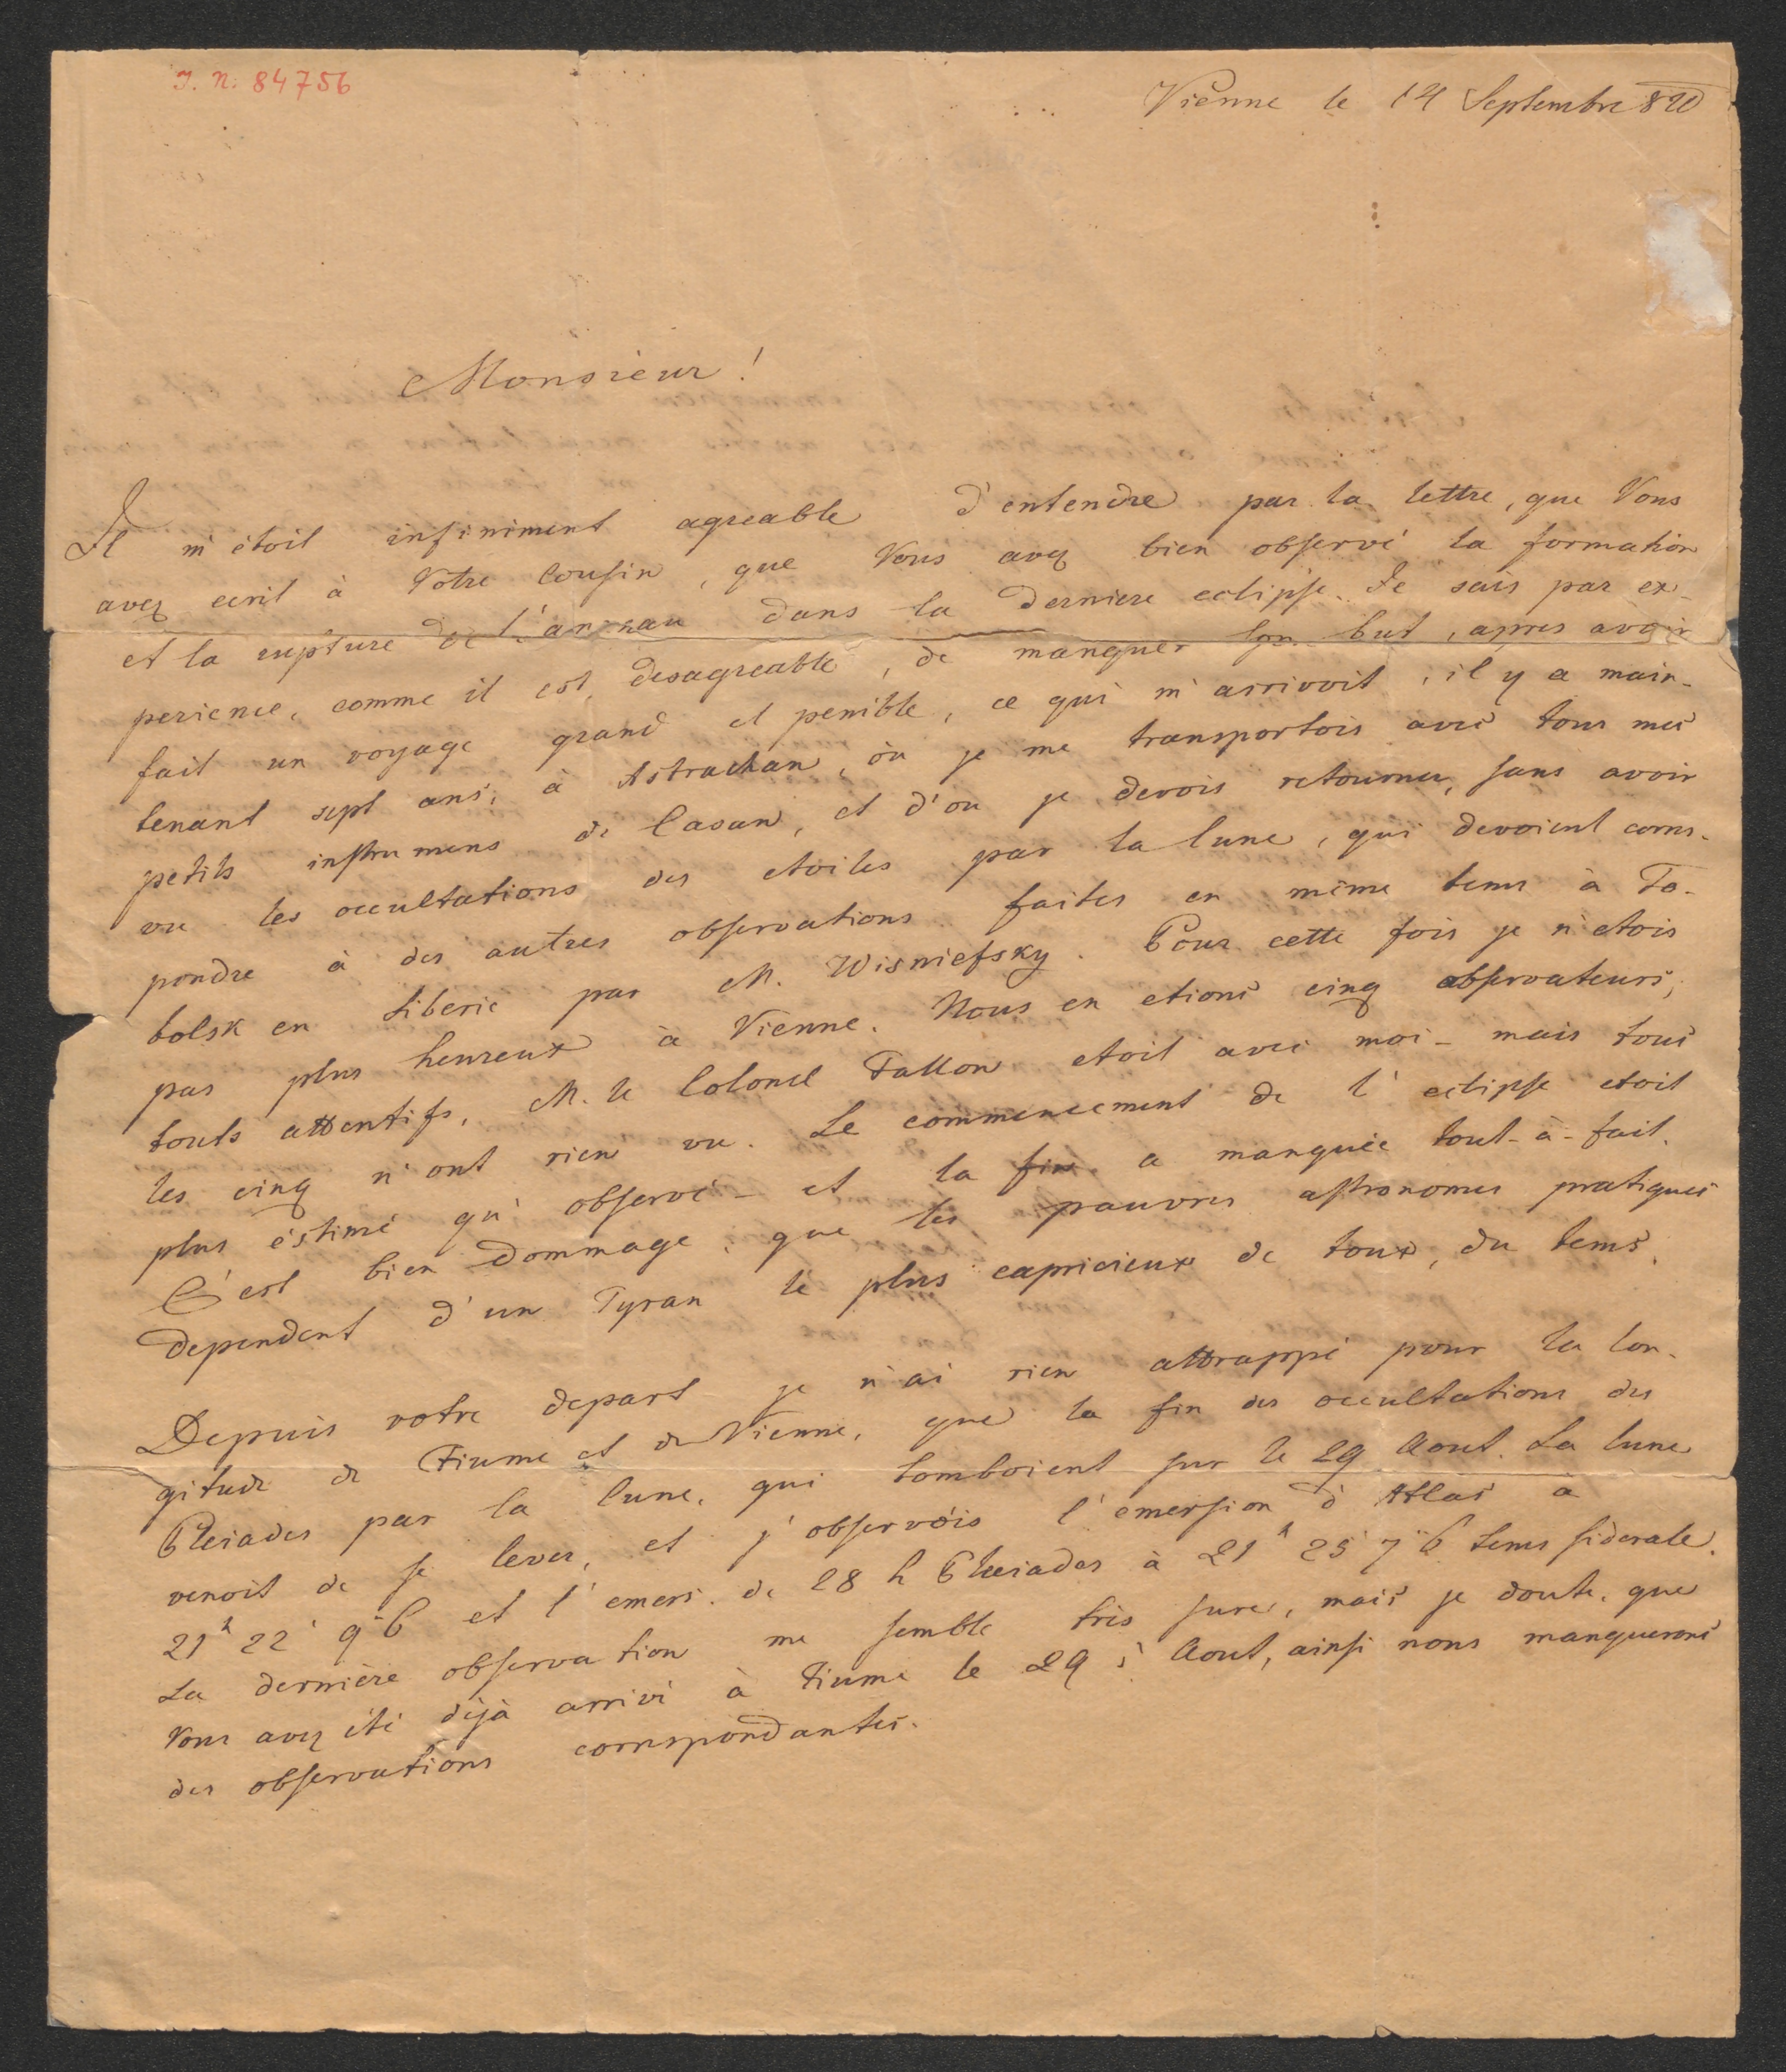 J. N. 84756
Vienne le 14 Septembre 820
Monsieur!
Il m'étoit infiniment agreable d'entendre par la lettre, que Vous
avez ecrit à Votre Cousin, que Vous avez bien observé la formation
et la rupture de l'anneau dans la derniere eclipse. Je sais par ex-
perience, comme il est desagreable, de manquer son but, apres avoir
fait un voyage grand et penible, ce qui m'arrivoit, il y a main-
tenant sept ans, à Astrachan, où je me transportois avec tous mes
petits instrumens de Casan, et d'ou je devois retourner, sans avoir
vu les occultations des etoiles par la lune, qui devoient corres-
pondre à des autres observations faites en même tems à To-
bolsk en Siberie par M. Wisniefsky. Pour cette fois je n'etois
pas plus heureux à Vienne. Nous en etions cinq observateurs,
touts attentifs, M. le Colonel Fallon etoit avec moi – mais tous
les cinq n'ont rien vu. Le commencement de l'eclipse etoit
plus éstimé qu'observé – et la fin a manquée tout-à-fait.
C'est bien dommage, que les pauvres astronomes pratiques
dependent d'un Tyran le plus capricieux de tous, du tems.
Depuis votre depart je n'ai rien attrappé pour la lon-
gitude de Fiume et de Vienne, que la fin des occultations des
Pleiades par la lune, qui tomboient sur le 29 Aout. La lune
venoit de se lever, et j'observois l'emersion d'Atlas à
21h 22' 9"6 et l'emers. de 28 h Pleiades à 21h 25' 7"6 tems siderale.
La dernière observation me semble très sure, mais je doute, que
Vous avez été déjà arrivé à Fiume le 29 Aout, ainsi nous manquerons
des observations correspondantes.